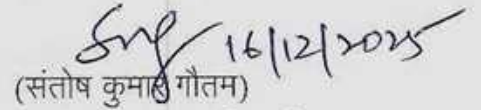 16/12/2025
(संतोष कुमार गौतम)